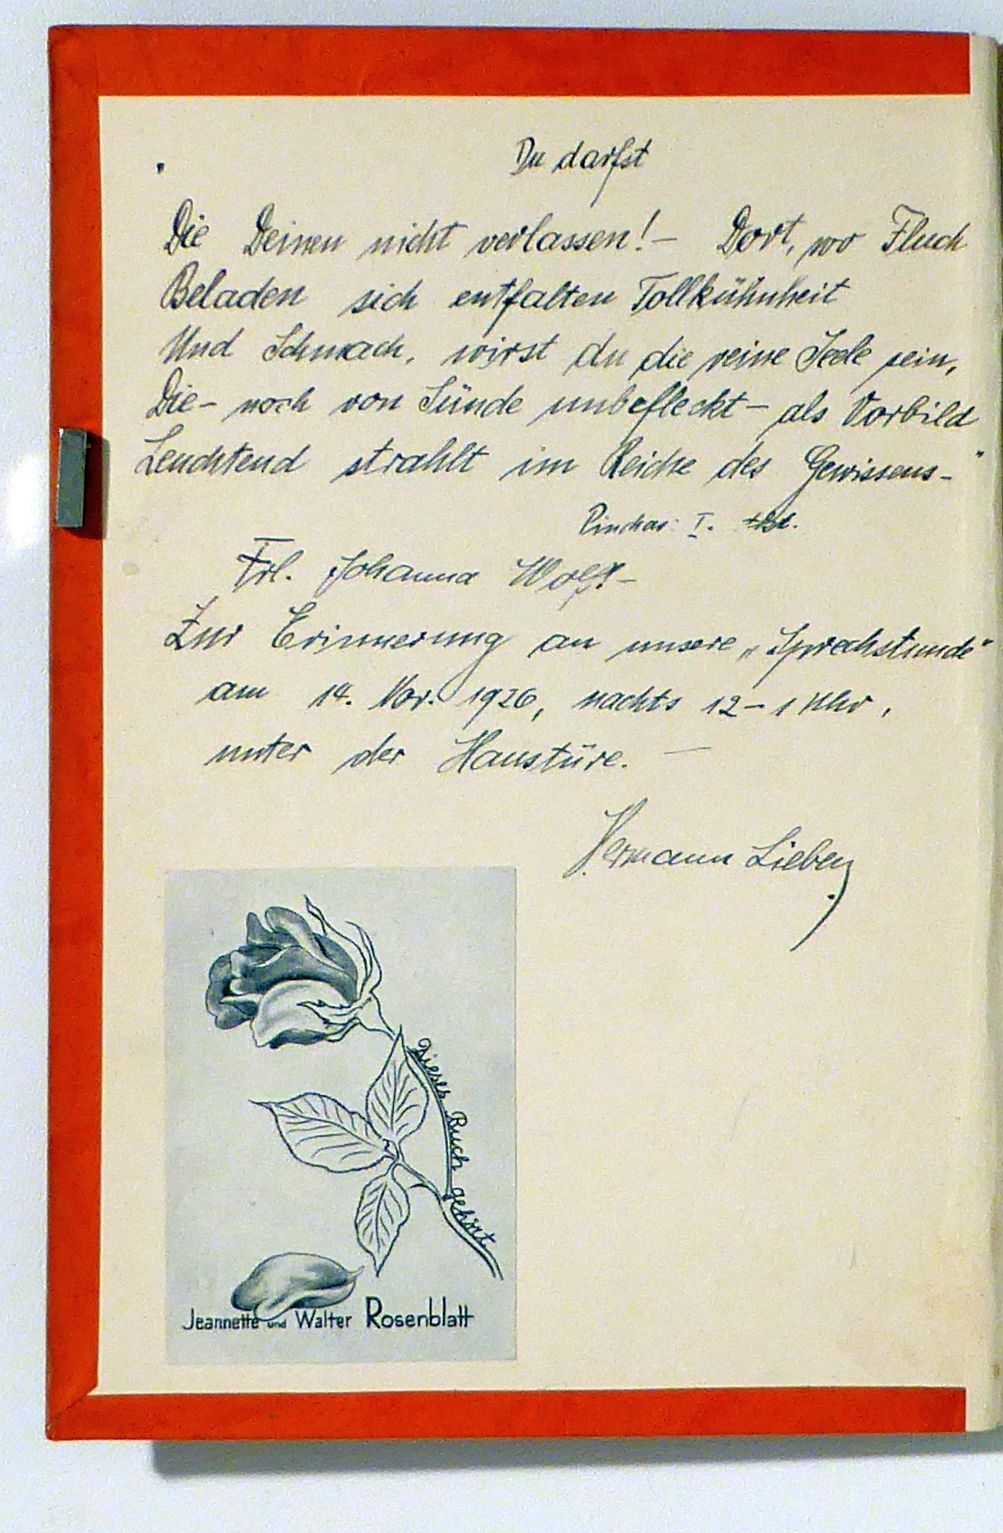 Du darfst
Die Deinen nicht verlassen! – Dort, wo Fluch
Beladen sich entfalten Tollkühnheit
Und Schmach, wirst du die reine Seele sein,
Die – noch von Sünde unbefleckt – als Vorbild
Leuchtend strahlt im Reiche des Gewissens – "
Pinchas: I.
Frl. Johanna Wolf. –
Zur Erinnerung an unsere „Sprechstunde"
am 14. Nov. 1926, nachts 12 – 1 Uhr,
unter der Haustüre. —
Hermann Lieben
Dieses Buch gehört
Jeannette und Walter Rosenblatt